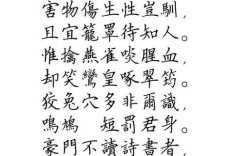 害物傷生性豈馴，
且宜籠罩待知人。
惟擒燕雀啖腥血，
却笑鸞皇啄翠筠。
狡兔穴多非爾識，
鳴鳩 短罰君身。
豪門不讀詩書者，